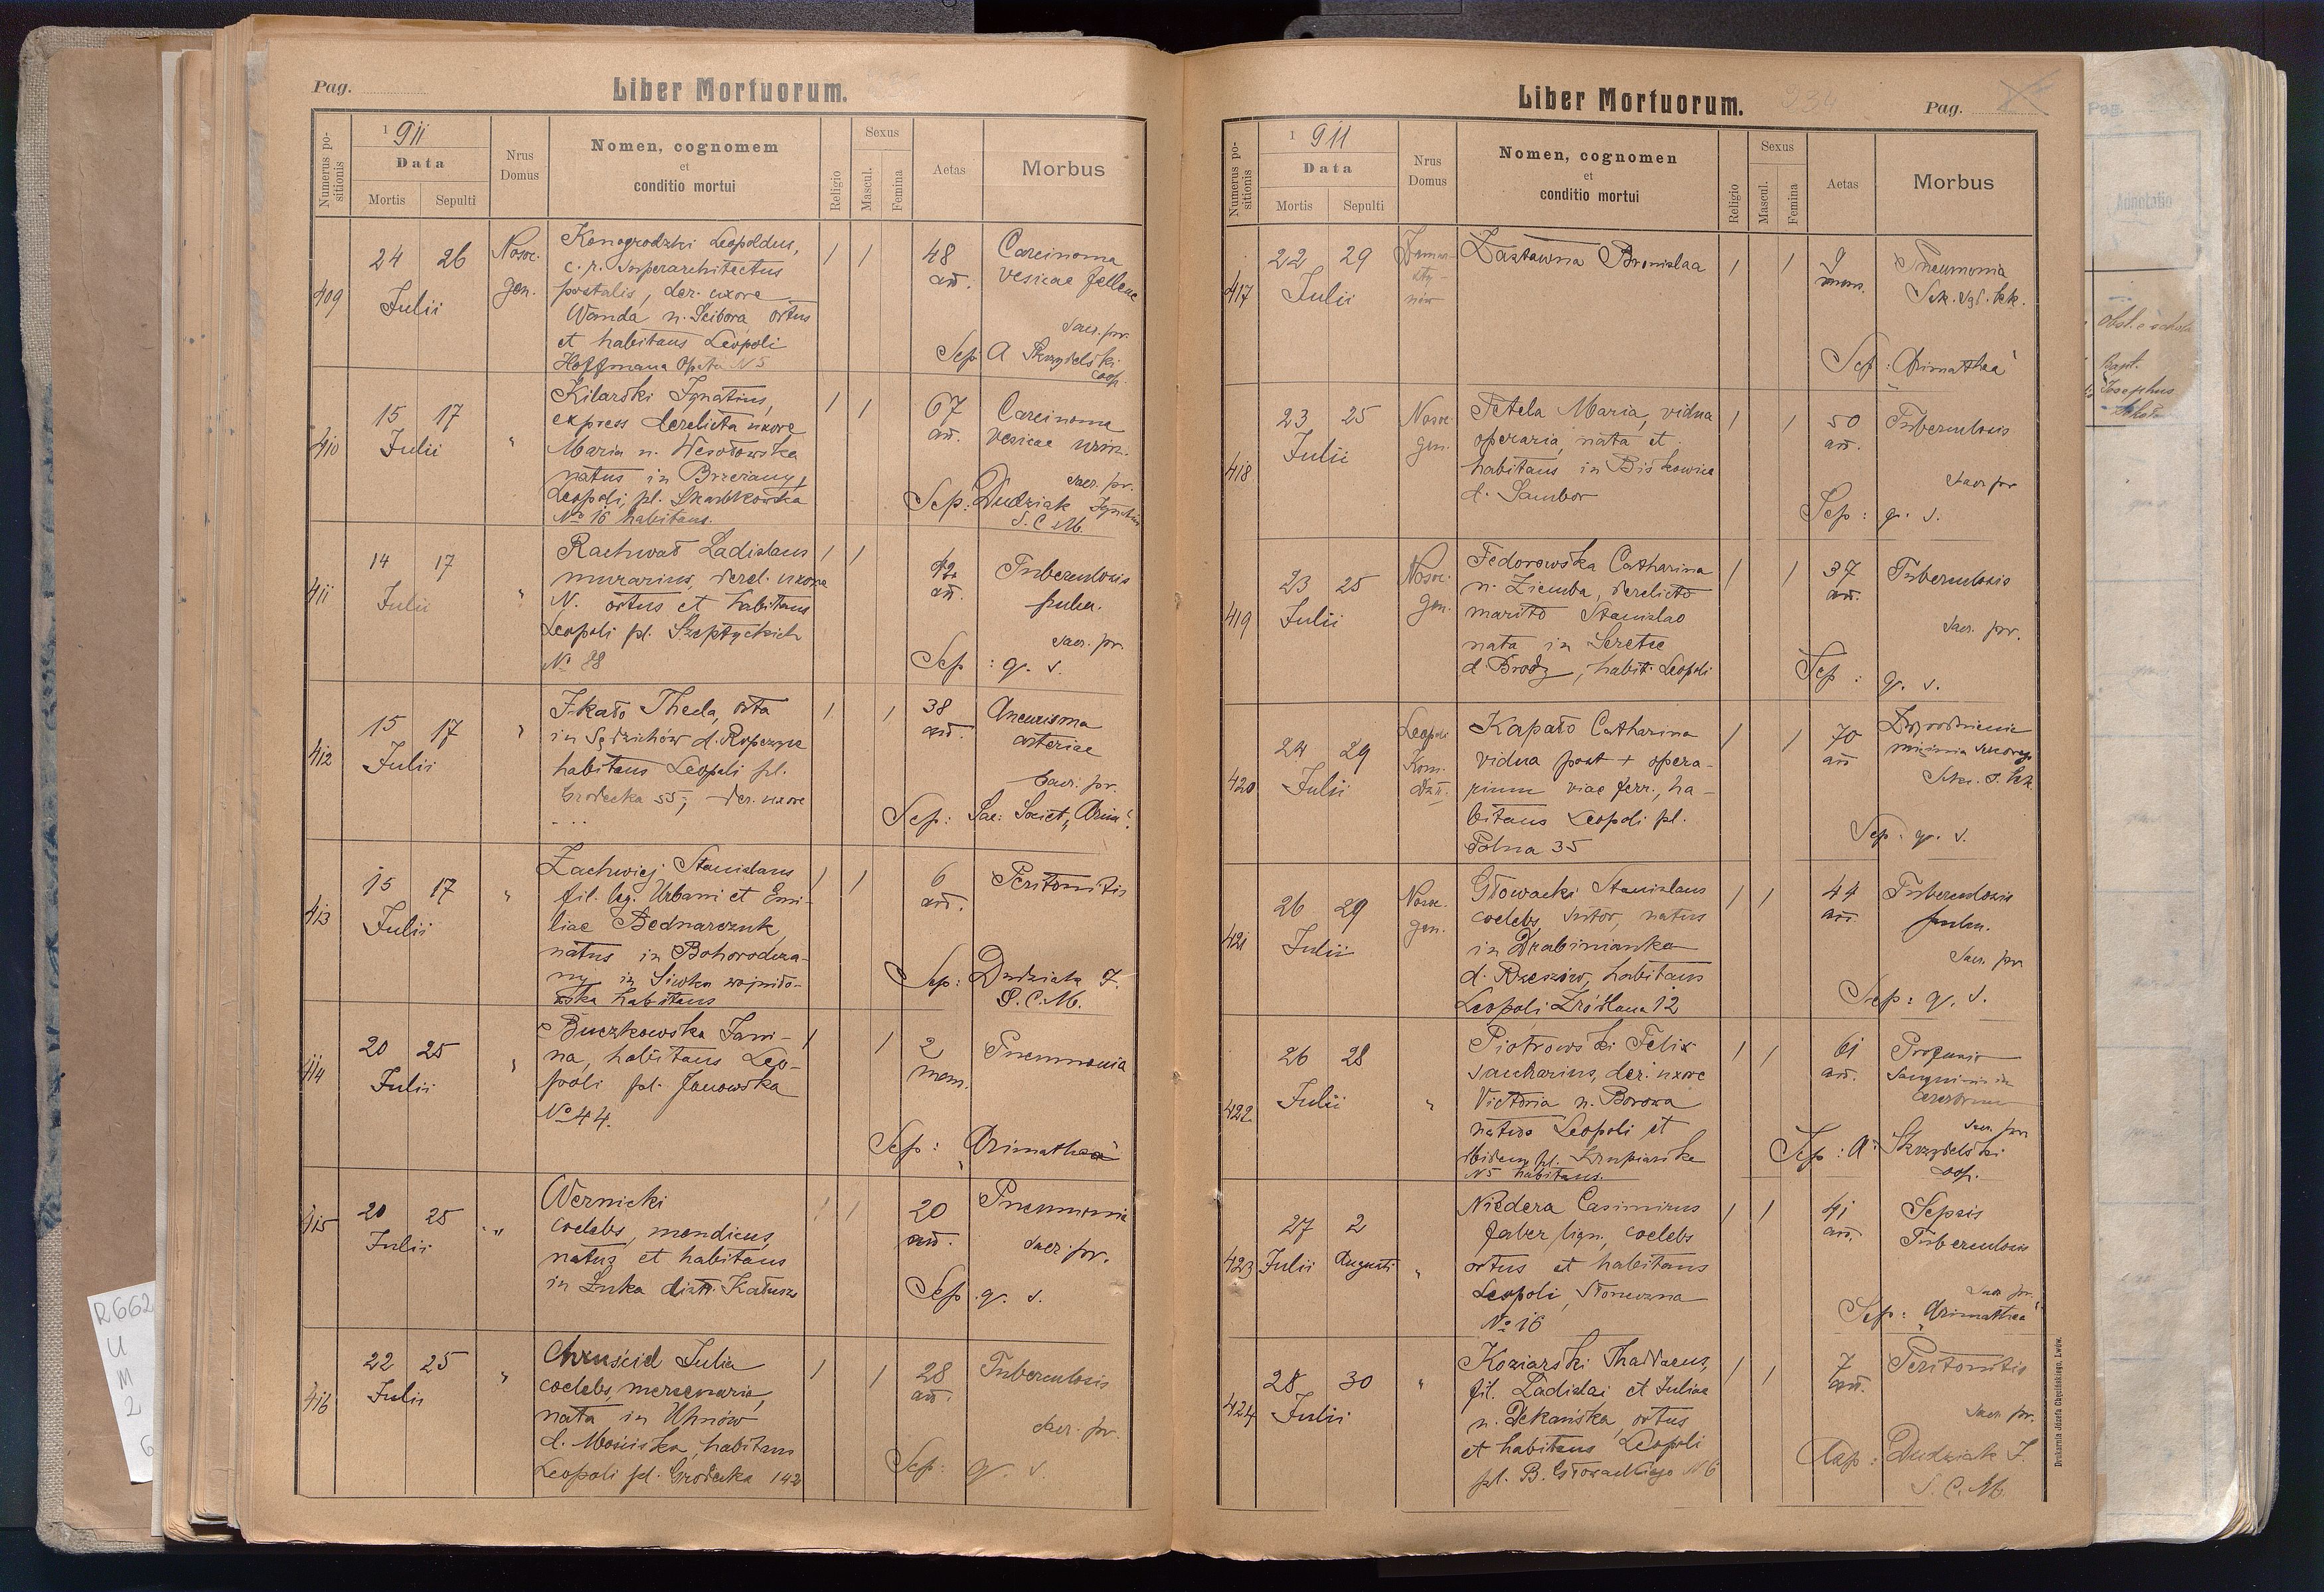 Pag.
Liber Mortuorum.
Numerus positionis
1911
Data
Mortis
Sepulti
Nrus Domus
Nomen, cognomem
et
conditio mortui
Religio
Sexus
Mascul.
Femina
Aetas
Morbus
409
24 26
Julii
Nosoc.
gen.
Konogrodzki Leopoldus,
c. r. Superarchitectus
postalis, der. uxore
Wanda n. Scibora, ortus
et habitans Leopoli
Hoffmana Opata N 5
1 1
48
an.
Carcinoma
vesicae felleae
Sacr. pr.
Sep. A Skrzydelski
coop.
410
15 17
Julii
"
Kilarski Ignatius,
express derelicta uxore
Maria n. Wesołowska
natus in Brzeżany,
Leopoli, pl. Skarbkowska
No 16 habitans.
1 1
67
an.
Carcinoma
vesicae urin.
Sacr. pr.
Sep: Dudziak Ignatius
S. C. M.
411
14 17
Julii
"
Rachwał Ladislaus
murarius, derel. uxore
N. ortus et habitans
Leopoli pl. Szeptyckich
No 88
1 1
42
an.
Tuberculosis
pulm.
Sacr. pr.
Sep : q. s.
412
15 17
Julii
"
Thecla, orta
in Sędzichów d. Ropczyce
habitans Leopoli pl.
Grodecka 55, der. uxore
...
1 1
38
an.
Aneurisma
arteriae
Sacr. pr.
Sep: Sac: Societ. "Arim".
413
15 17
Julii
"
Zachwiej Stanislaus
fil. leg. Urbani et Emi-
liae Bednarczuk,
natus in Bohorodcza-
ny in Siwka wojniło-
wska habitans
1 1
6
an.
Peritonitis
Sep: Dudziak J.
S. C. M.
414
20 25
Julii
"
Buczkowska Jani-
na, habitans Leo-
poli pl. Janowska
No 44.
1 1
2
mens.
Pneumonia
Sep: "Arimathea"
415
20 25
Julii
"
Wernicki
coelebs, mendicus,
natus et habitans
in Łuka distr. Kałusz
1 1
20
an.
Pneumonia
Sacr. pr.
Sep. q. s.
416
22 25
Julii
"
Chruściel Julia
coelebs, mercenaria,
nata in Uhnów
d. Mościska, habitans
Leopoli pl. Grodecka 142
1 1
28
an.
Tuberculosis
Sacr. pr.
Sep: q. s.
Liber Mortuorum.
234
Pag.
Numerus positionis
1911
Data
Mortis
Sepulti
Nrus Domus
Nomen, cognomen
et
conditio mortui
Religio
Sexus
Mascul.
Femina
Aetas
Morbus
417
22 29
Julii
Zamar-
sty-
nów
Zastawna Bronislaa
1 1
9
mens.
Pneumonia
Sep: "Arimathea"
418
23 25
Julii
Nosoc.
gen.
Tetela Maria, vidua
operaria, nata et
habitans in Biskowice
d. Sambor
1 1
50
an.
Tuberculosis
Sacr. pr.
Sep: q. s.
419
23 25
Julii
Nosoc.
gen.
Fedorowska Catharina
n. Ziemba, derelicto
marito Stanislao
nata in
d. Brody, habit. Leopoli
1 1
37
an.
Tuberculosis
Sacr. pr.
Sep: q. s.
420
24 29
Julii
Leopoli
Kom.
Kapało Catharina
vidua post + opera-
rium viae ferr., ha-
bitans Leopoli pl.
Polna 35
1 1
70
an.
Zwyrodnienie
mięśnia sercowego
Sep. q. s.
421
26 29
Julii
Nosoc.
gen.
Głowacki Stanislaus
coelebs, sutor, natus
in Drabinianka
d. Rzeszów, habitans
Leopoli Źródlana 12
1 1
44
an.
Tuberculosis
pulm.
Sacr. pr.
Sep: q. s.
422
26 28
Julii
"
Piotrowski Felix
saccharius, der. uxore
Victoria n. Borowa
natus Leopoli et
ibidem pl. Krupiarska
N 5 habitans.
1 1
61
an.
Profusio
sanguinis in
cerebrum
Sacr. pr.
Sep: A. Skrzydelski
coop.
423
27 2
Julii Augusti
"
Niedera Casimirus
faber lign., coelebs
ortus et habitans
Leopoli, Słoneczna
No 16
1 1
41
an.
Sepsis
Tuberculosis
Sacr. pr.
Sep: "Arimathea"
424
28 30
Julii
"
Koziarski Thaddaeus,
fil. Ladislai et Juliae
n. Dekańska, ortus
et habitans Leopoli
pl. B. Głowackiego N 6
1 1
7
an.
Peritonitis
Sacr. pr.
Sep: Dudziak J.
S. C. M.
Drukarnia Józefa Chęcińskiego, Lwów.
Pag.
Annotatio
Bapt.
Josephus
R662
U
M
2
6